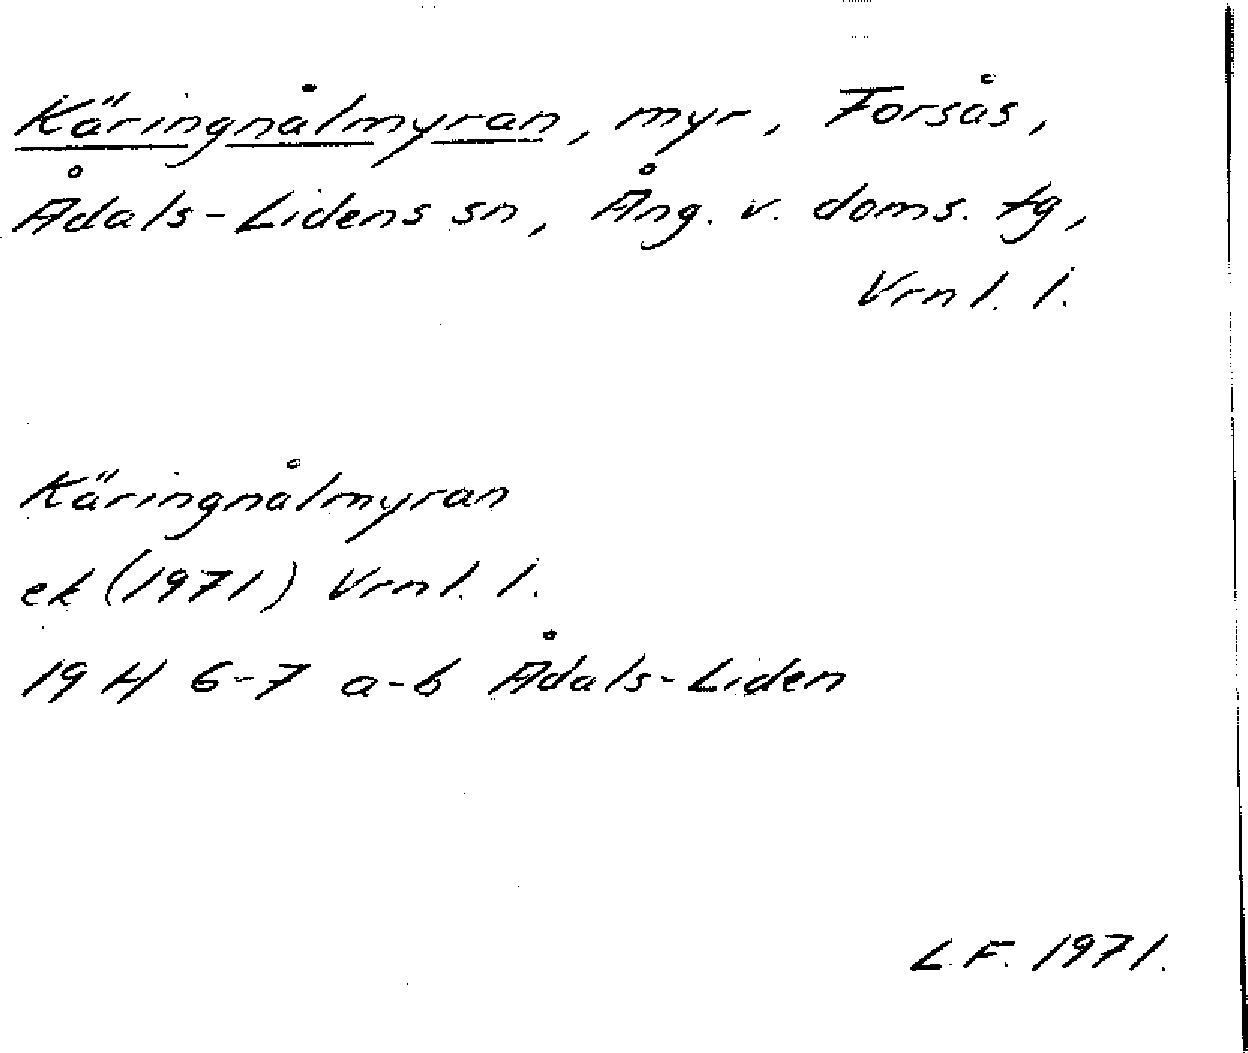 Käringnålmyran, myr, Forsås,
Ådals-Lidens sn, Ång. v. doms. tg,
Vrnl. l.
Käringnålmyran
ek (1971) Vrnl. l.
19 H 6-7 a-b Ådals-Liden
L.F. 1971.